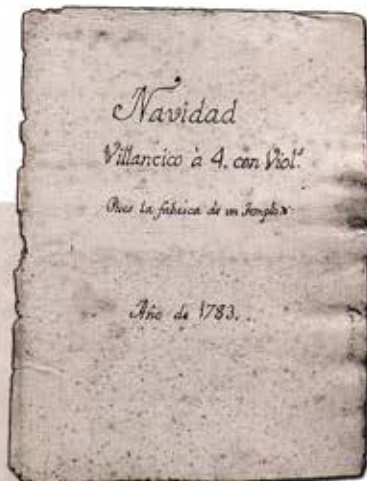 Navidad
Villancico à 4. con Viol.ˢ
Pues la fabrica de un Templo
Año de 1783.